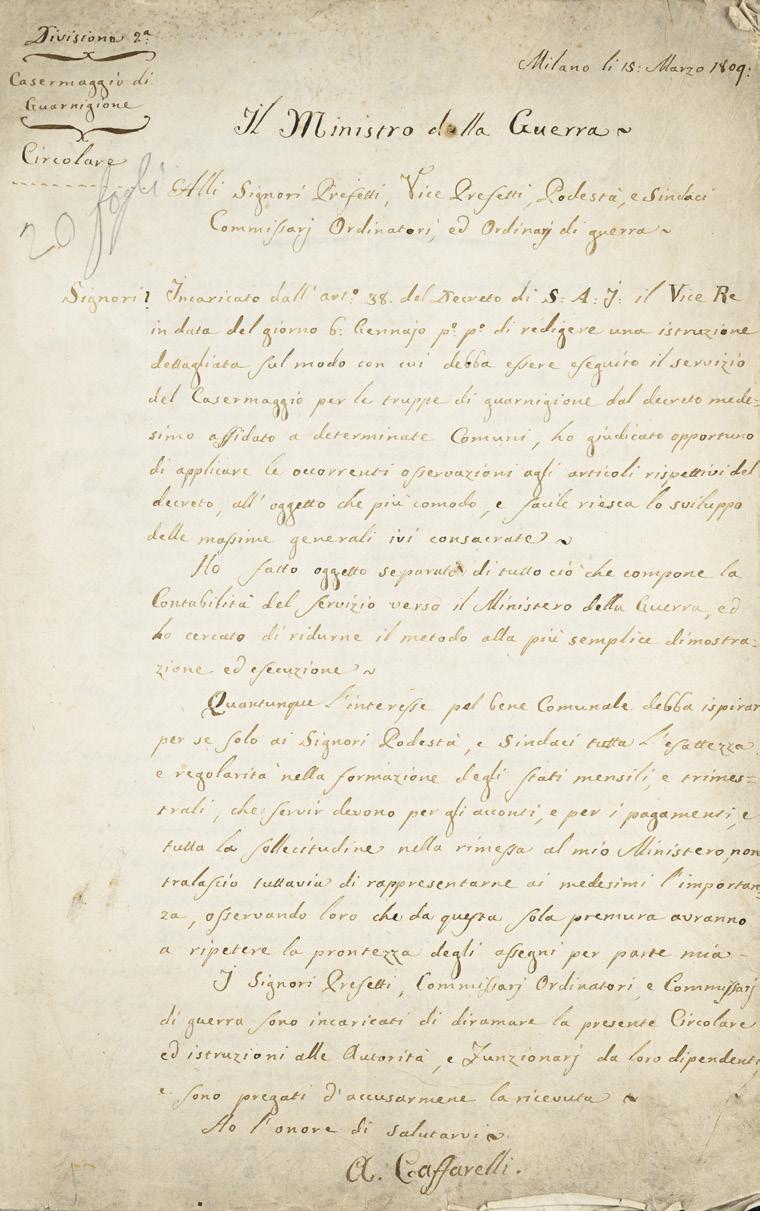 Divisione 2ª
Casermaggio di
Guarnigione
Circolare
20 fogli
Milano li 15: Marzo 1809:
Il Ministro della Guerra
Alli Signori Prefetti, Vice Prefetti, Podestà, e Sindaci
Commissarj Ordinatori, ed Ordinarj di guerra
Signori! Incaricato dall' artº 38. del Decreto di S: A: J: il Vice Re
in data del giorno 6: Gennajo pº pº di redigere una istruzione
dettagliata sul modo con cui debba essere eseguito il servizio
del Casermaggio per le truppe di guarnigione dal decreto mede=
simo affidato a determinate Comuni, ho giudicato opportuno
di applicare le occorrenti osservazioni agli articoli rispettivi del
decreto, all' oggetto che più comodo, e facile riesca lo sviluppo
delle massime generali ivi consacrate
Ho fatto oggetto separato di tutto ciò che compone la
Contabilità del servizio verso il Ministero della Guerra, ed
ho cercato di ridurne il metodo alla più semplice dimostra=
zione ed esecuzione
Quantunque l'interesse pel bene Comunale debba ispirar
per se solo ai Signori Podestà, e Sindaci tutta l'esattezza
e regolarità nella formazione degli stati mensili, e trimes=
trali, che servir devono per gli acconti, e per i pagamenti, e
tutta la sollecitudine nella rimessa al mio Ministero, non
tralascio tuttavia di rappresentarne ai medesimi l'importan=
za, osservando loro che da questa sola premura avranno
a ripetere la prontezza degli assegni per parte mia -
J Signori Prefetti, Commissarj Ordinatori, e Commissarj
di guerra sono incaricati di diramare la presente Circolare
ed istruzioni alle Autorità, e Funzionarj da loro dipendenti
e sono pregati d'accusarmene la ricevuta
Ho l'onore di salutarvi
A. Caffarelli.